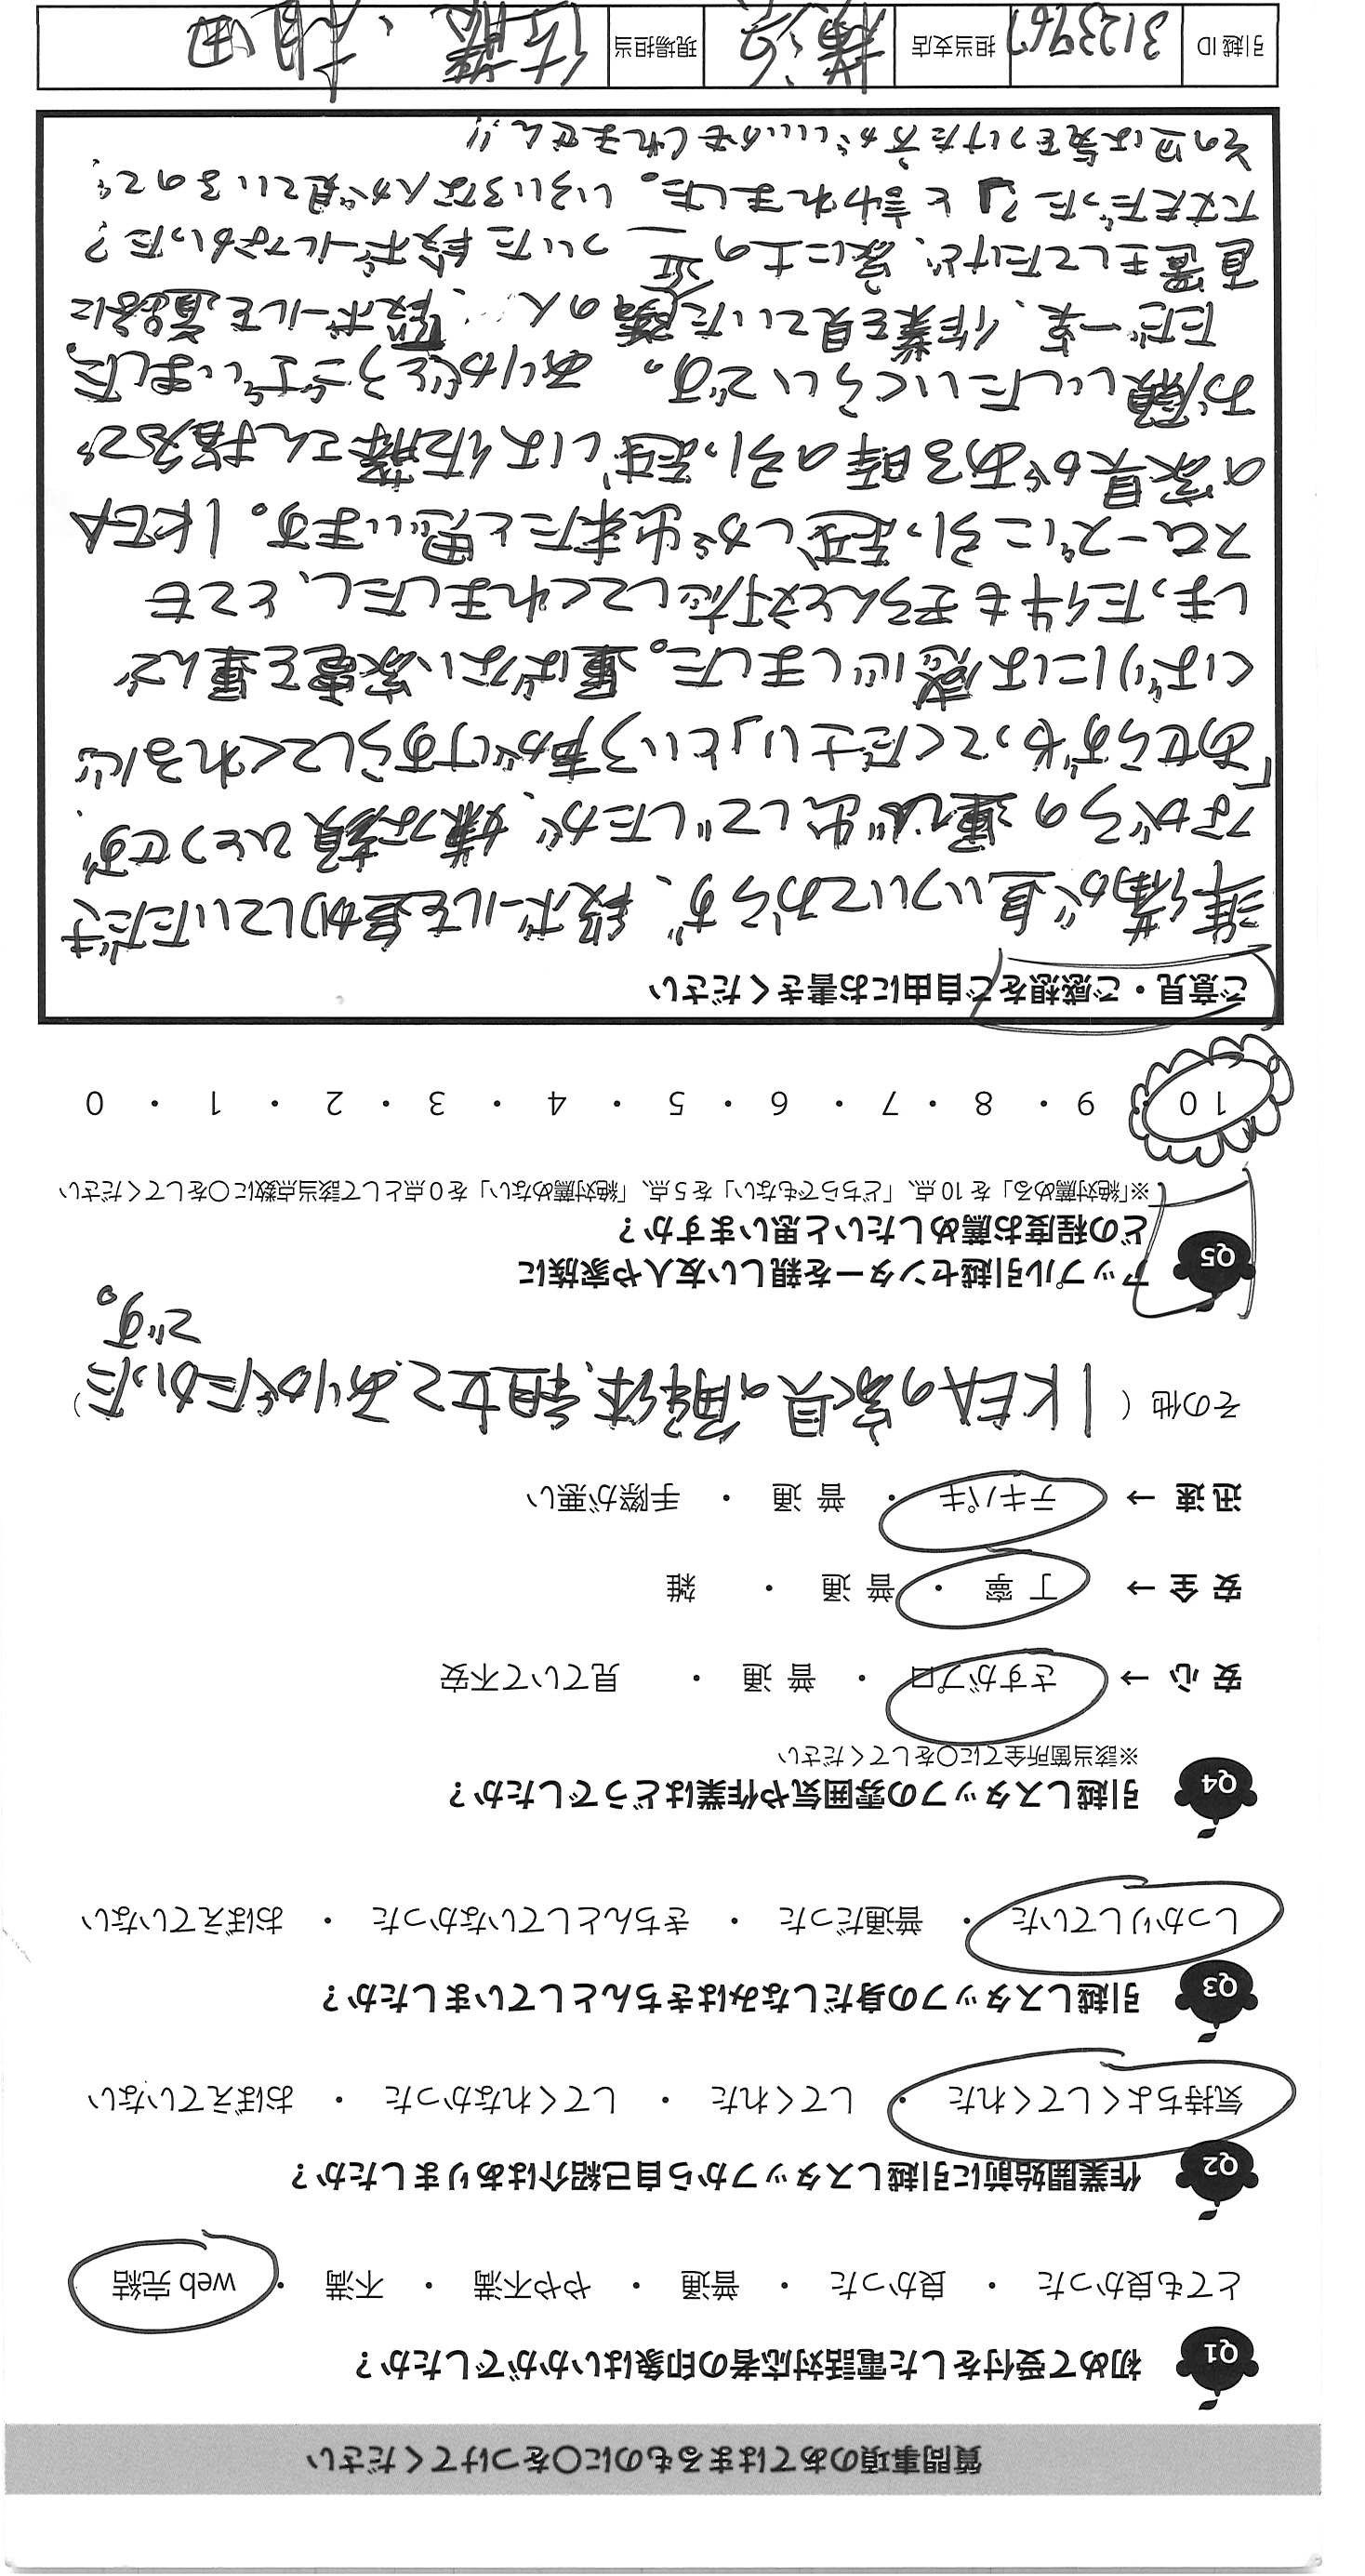 質問事項のあてはまるものに○をつけてください
Q1 初めて受付をした電話対応者の印象はいかがでしたか？
とても良かった ・ 良かった ・ 普通 ・ やや不満 ・ 不満 ・ web 完結
Q2 作業開始前に引越しスタッフから自己紹介はありましたか？
気持ちよくしてくれた ・ してくれた ・ してくれなかった ・ おぼえていない
Q3 引越しスタッフの身だしなみはきちんとしていましたか？
しっかりしていた ・ 普通だった ・ きちんとしていなかった ・ おぼえていない
Q4 引越しスタッフの雰囲気や作業はどうでしたか？
※該当箇所全てに○をしてください
安心 → さすがプロ ・ 普通 ・ 見ていて不安
安全 → 丁寧 ・ 普通 ・ 雑
迅速 → テキパキ ・ 普通 ・ 手際が悪い
その他（ IKEAの家具の解体、組立と、ありがたかった ）
です。
Q5 アップル引越センターを親しい友人や家族に
どの程度お薦めしたいと思いますか？
※「絶対薦める」を10点、「どちらでもない」を5点、「絶対薦めない」を0点として該当点数に○をしてください
10 ・ 9 ・ 8 ・ 7 ・ 6 ・ 5 ・ 4 ・ 3 ・ 2 ・ 1 ・ 0
ご意見・ご感想をご自由にお書きください
準備が追いついておらず、段ボールを追加していただき
ながらの運び出しでしたが、嫌な顔ひとつせず
「あせらずやってください」という声がけすらしてくれる心
くばりには感心しました。運ばない家電を運んで
しまった件もきちんと対応してくれましたし、とても
スムーズに引っ越しが出来たと思います。IKEA
の家具がある時の引っ越しは佐藤さん指名で
お願いしたいくらいです。ありがとうございました。
ただ一案、作業を見ていた隣の人、段ボールを道路に
直置きしてたけど、家に土の ついた段ボールなかった？
大丈夫だった？」と言われました。いろいろな人が見ているので、
その辺は気をつけた方がいいかもしれません!!
引越ID 3123967 担当支店 横浜 現場担当 佐藤、福田